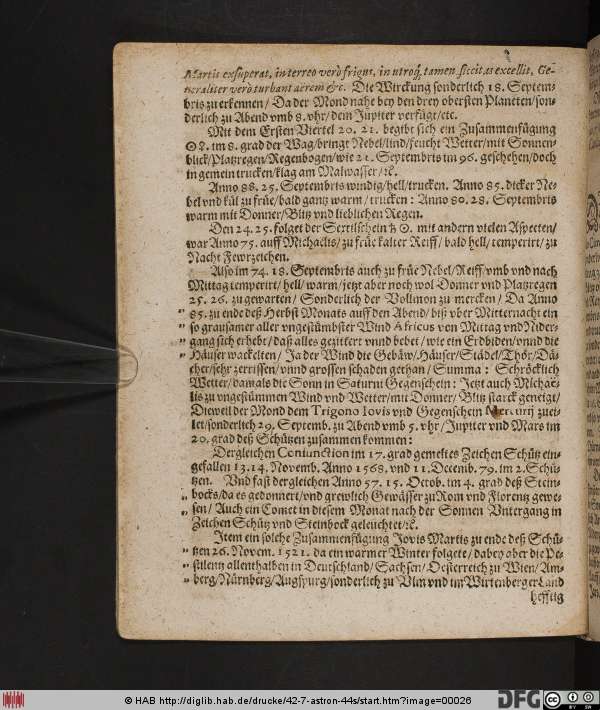 Martis exsuperat, in terreo verò frigus, in utroq́, tamen siccitas excellit, Ge-
neraliter verò turbant aërem &c. Die Wirckung sonderlich 18. Septem-
bris zu erkennen / Da der Mond nahe bey den drey obersten Planeten / son-
derlich zu Abend vmb 8. vhr / dem Jupiter verfügt / etc.
Mit dem Ersten Viertel 20. 21. begibt sich ein Zusammenfügung
im 8. grad der Wag / bringt Nebel / lind / feucht Wetter / mit Sonnen-
blick / Platzregen / Regenbogen / wie 21. Septembris im 96. geschehen / doch
in gemein trucken / klag am Malwasser / ꝛc.
Anno 88. 25. Septembris windig / hell / trucken. Anno 85. dicker Ne-
bel vnd kül zu früe / bald gantz warm / trucken: Anno 80. 28. Septembris
warm mit Donner / Blitz vnd lieblichen Regen.
Den 24. 25. folget der Sextilschein ♄ ☉. mit andern vielen Aspecten /
war Anno 75. auff Michaelis / zu früe kalter Reiff / bald hell / temperirt / zu
Nacht Fewrzeichen.
Also im 74. 18. Septembris auch zu früe Nebel / Reiff / vmb vnd nach
Mittag temperirt / hell / warm / jetzt aber noch wol Donner vnd Platzregen
25. 26. zu gewarten / Sonderlich der Vollmon zu mercken / Da Anno
„ 85. zu ende deß Herbst Monats auff den Abend / biß vber Mitternacht ein
„ so grausamer aller vngestümbster Wind Africus von Mittag vnd Nider-
„ gang sich erhebt / daß alles gezittert vnnd bebet / wie ein Erdbiden / vnnd die
„ Häuser wackelten / Ja der Wind die Gebäw / Häuser / Städel / Thör / Dä-
cher / sehr zerrissen / vnnd grossen schaden gethan / Summa: Schröcklich
Wetter / damals die Sonn in Saturni Gegenschein: Jetzt auch Michae-
lis zu vngestümmen Wind vnd Wetter / mit Donner / Blitz starck geneigt /
Dieweil der Mond dem Trigono Iovis vnd Gegenschein Mercurij zuei-
let / sonderlich 29. Septemb. zu Abend vmb 5. vhr / Jupiter vnd Mars im
20. grad deß Schützen zusammen kommen:
Dergleichen Coniunction im 17. grad gemeltes Zeichen Schütz ein-
gefallen 13. 14. Novemb. Anno 1568. vnd 11. Decemb. 79. im 2. Schü-
tzen. Vnd fast dergleichen Anno 57. 15. Octob. im 4. grad deß Stein-
„ bocks / da es gedonnert / vnd grewlich Gewässer zu Rom vnd Florentz gewe-
„ sen / Auch ein Comet in diesem Monat nach der Sonnen Vntergang in
Zeichen Schütz vnd Steinbock geleuchtet / ꝛc.
Item ein solche Zusammenfügung Jovis Martis zu ende deß Schü-
„ tzen 26. Novem. 1521. da ein warmer Winter folgete / dabey aber die Pe-
„ stilentz allenthalben in Deutschland / Sachsen / Oesterreich zu Wien / Am-
„ berg / Nürnberg / Augspurg / sonderlich zu Vlm vnd im Wirtenberger Land
hefftig
© HAB http://diglib.hab.de/drucke/42-7-astron-44s/start.htm?image=00026
DFG
cc BY SA